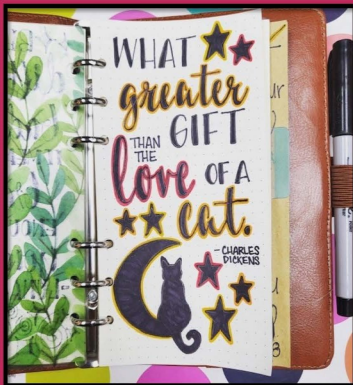 WHAT
greater
GIFT
THAN
THE
love OF A
cat.
- CHARLES
DICKENS